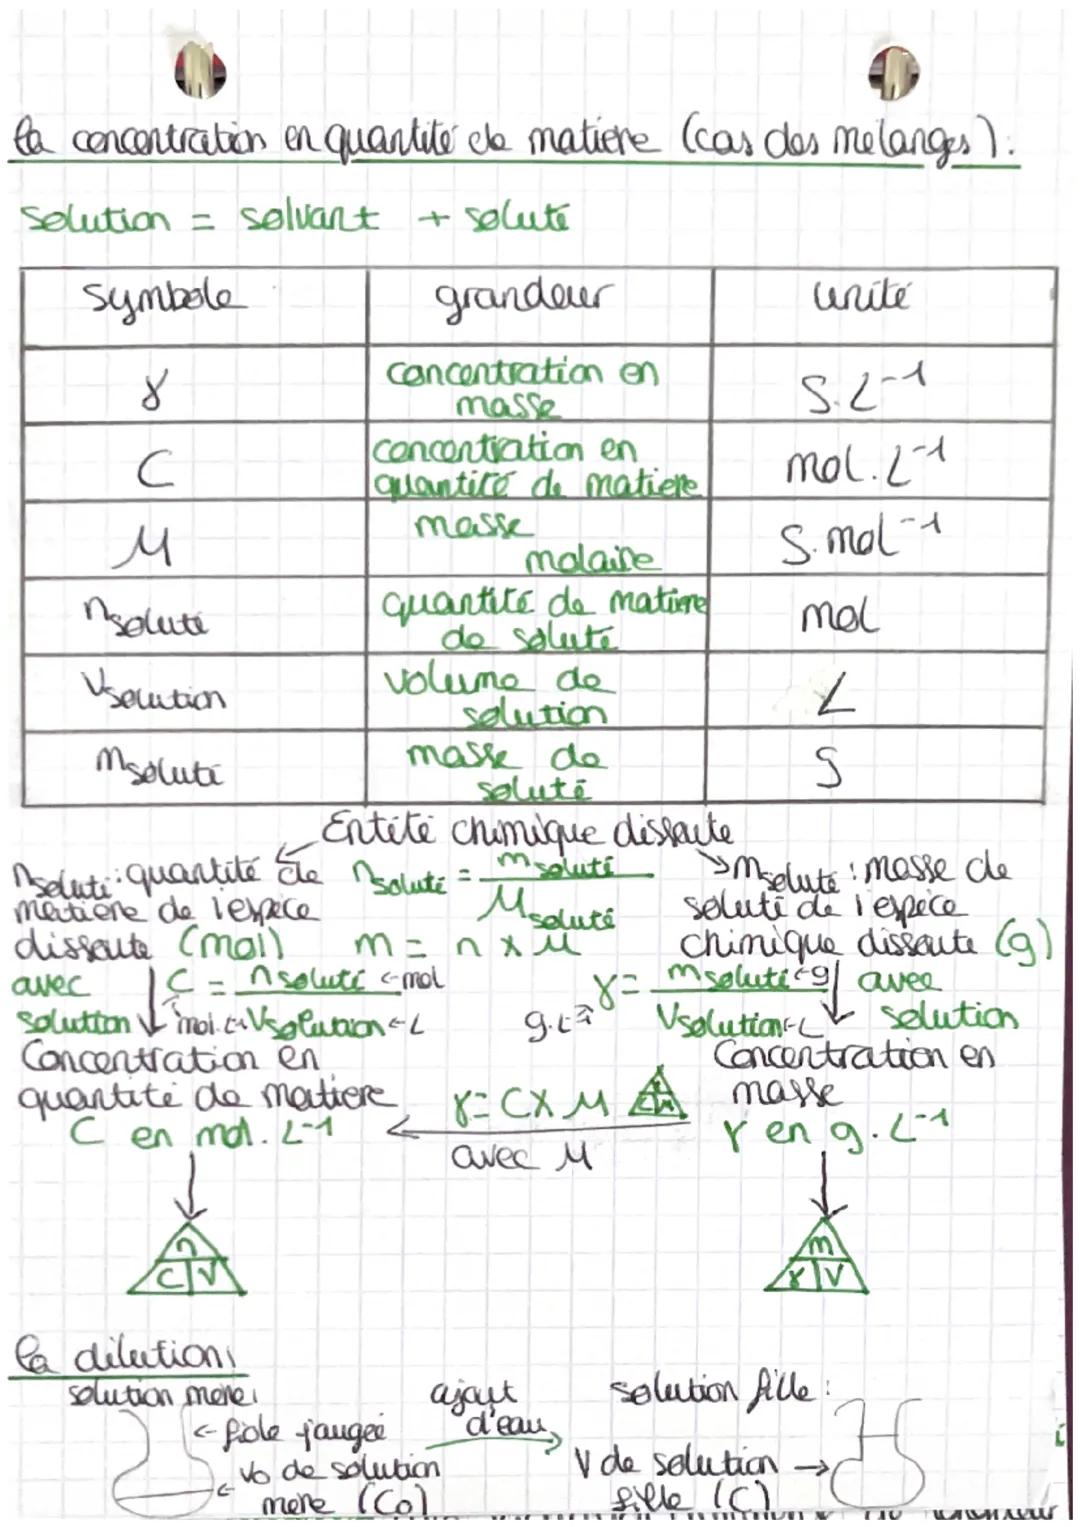 la concentration en quantité de matière (cas des mélanges):
solution = solvant + soluté
symbole grandeur unité
γ concentration en masse g.L-1
C concentration en quantité de matière mol.L-1
M masse molaire g.mol-1
nsoluté quantité de matière de soluté mol
Vsolution volume de solution L
msoluté masse de soluté g
Entité chimique dissoute
nsoluté: quantité de matière de l'espèce dissoute (mol)
nsoluté = msoluté / Msoluté
m = n x M
msoluté: masse de soluté de l'espèce chimique dissoute (g)
avec solution
C = nsoluté ← mol / Vsolution ← L
mol.L-1
g.L-1
γ = msoluté ← g / Vsolution ← L
avec solution
Concentration en quantité de matière
C en mol.L-1
γ = C x M
γ
C M
avec M
Concentration en masse
γ en g.L-1
n
C V
m
γ V
la dilution:
solution mère:
← fiole jaugée
← V0 de solution mère (C0)
ajout d'eau
solution fille:
V de solution → fille (C)